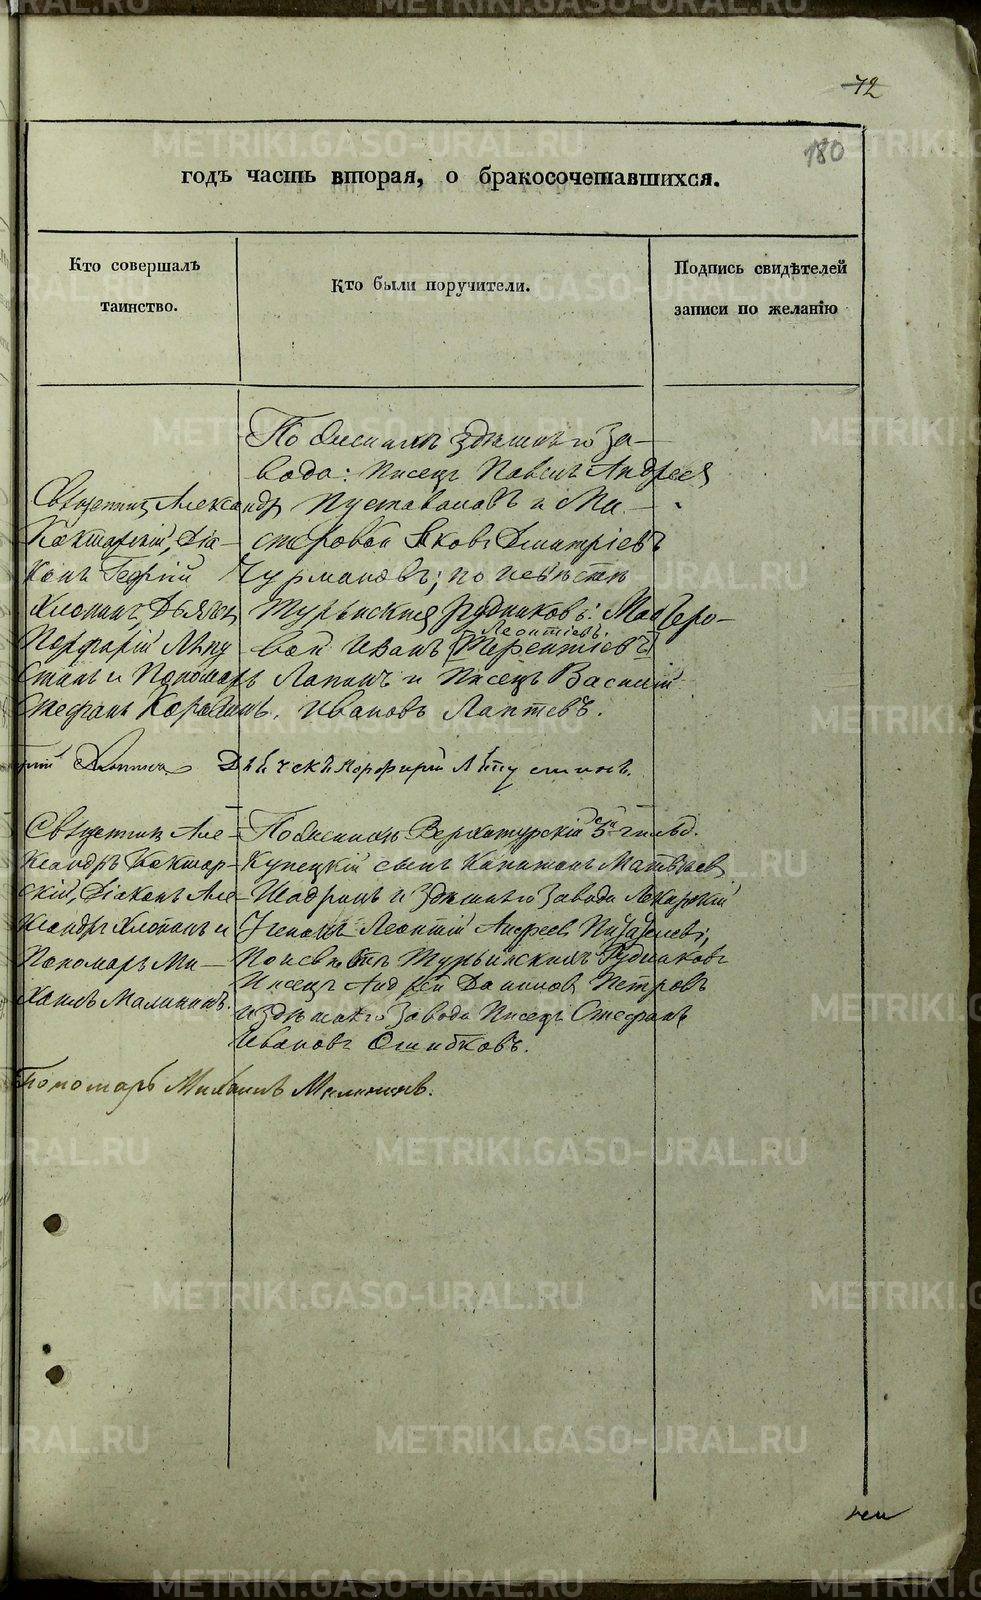 72
180
годъ часть вторая, о бракосочетавшихся.
Кто совершалъ
таинство.
Кто были поручители.
Подпись свидѣтелей
записи по желанію
Священник Алекса
ндр
Діа-
конъ Георгій
Хлопинъ, Дьячекъ
Порфирій Лѣпу
стинъ и Пономарь
Стефанъ
По женихѣ здѣшняго За-
вода: Писецъ Павелъ Андрея
Пустоваловъ и Ма-
стеровой Яковъ Дмитріевъ
Чурмановъ; по невѣстѣ
Турьинских Рудниковъ: Мастеро-
Леонтіевъ
вой Иванъ Терентіевъ
Лапинъ и Писецъ Василій
Ивановъ Лаптевъ.
Дьячекъ Порфирій Лѣпустинъ.
Священник Але-
ксандръ
скій, Діаконъ Але-
ксандръ Хлопинъ и
Пономарь Ми-
хаилъ Малининъ.
По женихѣ Верхотурскій 3й гильд.
Купецкій сынъ Капитонъ Матвѣевъ
Шадринъ и Здѣшняго Завода Лекарскій
Ученикъ Леонтій Андреевъ
По невѣстѣ Турьинских Рудниковъ
Писецъ Андрей Даниловъ Петровъ
и здѣшняго Завода Писецъ Стефанъ
Ивановъ Ошибковъ.
Пономарь Михаилъ Малининъ.